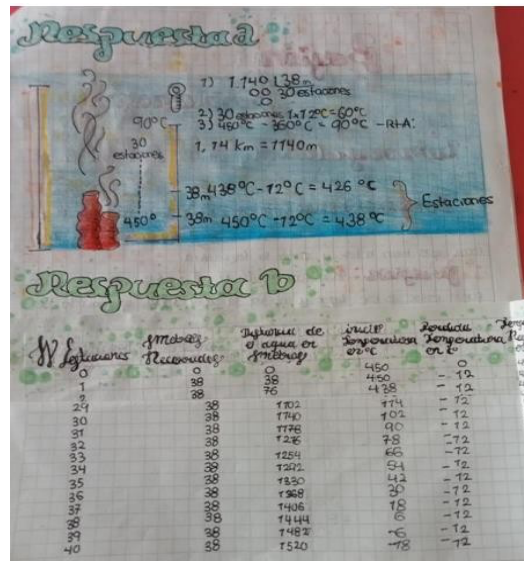 Respuesta a
1) 1.140 L38m
00 30 estaciones
0
2) 30 estaciones 1x12°C=60°C
3) 450°C - 360°C = 90°C - RtA:
90°C
30
estaciones
1,14 km = 1140m
38m 438°C-12°C = 426 °C
Estaciones
450° 38m 450°C -12°C = 438°C
Respuesta b
N Estaciones
Metros Recorridos
de agua en metros
Temperatura en °C
Temperatura en
0 0 0 450 0
1 38 38 450 -12
2 38 76 438 -12
29 38 1102 114 -12
30 38 1140 102 -12
31 38 1178 90 -12
32 38 78 -12
33 38 1254 66 -12
34 38 1292 54 -12
35 38 1330 42 -12
36 38 1368 30 -12
37 38 1406 18 -12
38 38 1444 6 -12
39 38 1482 -6 -12
40 38 1520 -18 -12